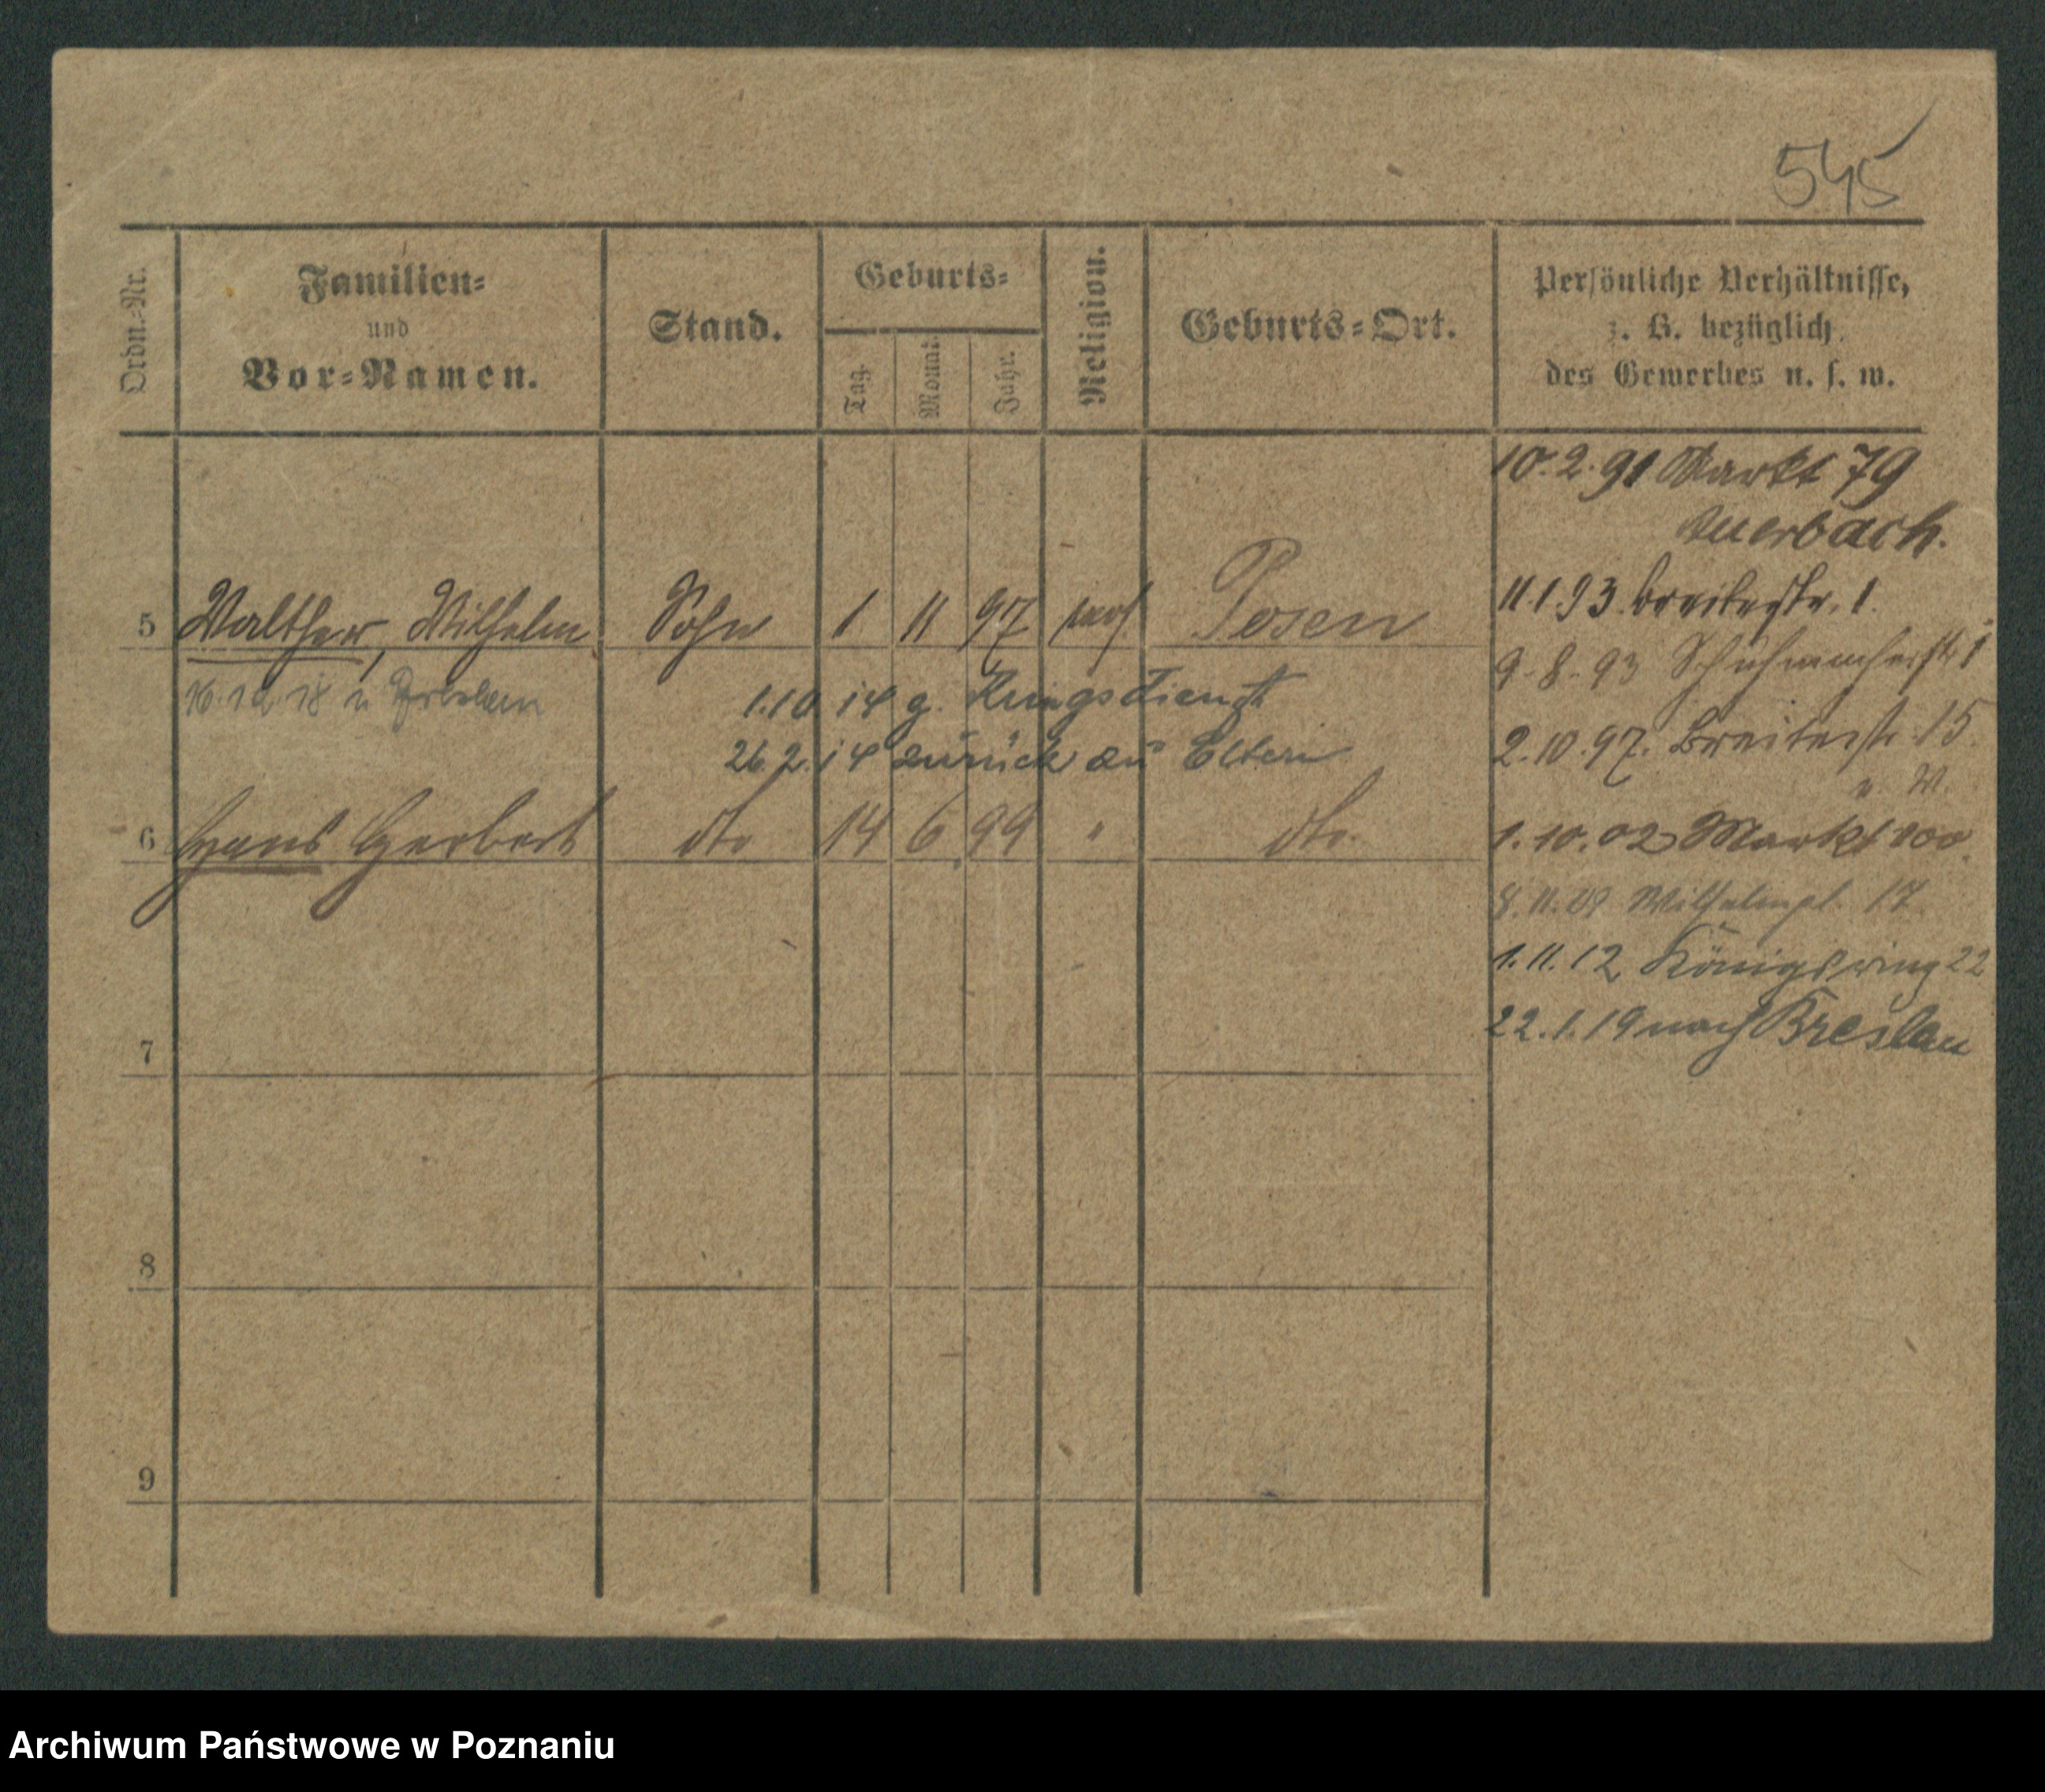 545
Ordn.-Nr.
Familien-
und
Vor-Namen.
Stand.
Geburts-
Tag.
Monat.
Jahr.
Religion.
Geburts-Ort.
Persönliche Verhältnisse,
z. B. bezüglich
des Gewerbes u. s. w.
10.2.91 Markt 79
Auerbach.
11.1.93. Breitestr. 1.
5 Walther, Wilhelm Sohn 1 11 97 Posen
9.8.93 Schuhmacherstr 1
1.10.14 z. Kriegsdienst
26.2.14 zurück zu Eltern
2.10.97. Breitestr. 15.
6 Hans Herbert dto 14 6 99 " dto.
1.10.02 Markt 100.
8.11.09 Wilhelmpl. 17
1.11.12 Königsring 22
22.1.19 nach Breslau
7
8
9
Archiwum Państwowe w Poznaniu